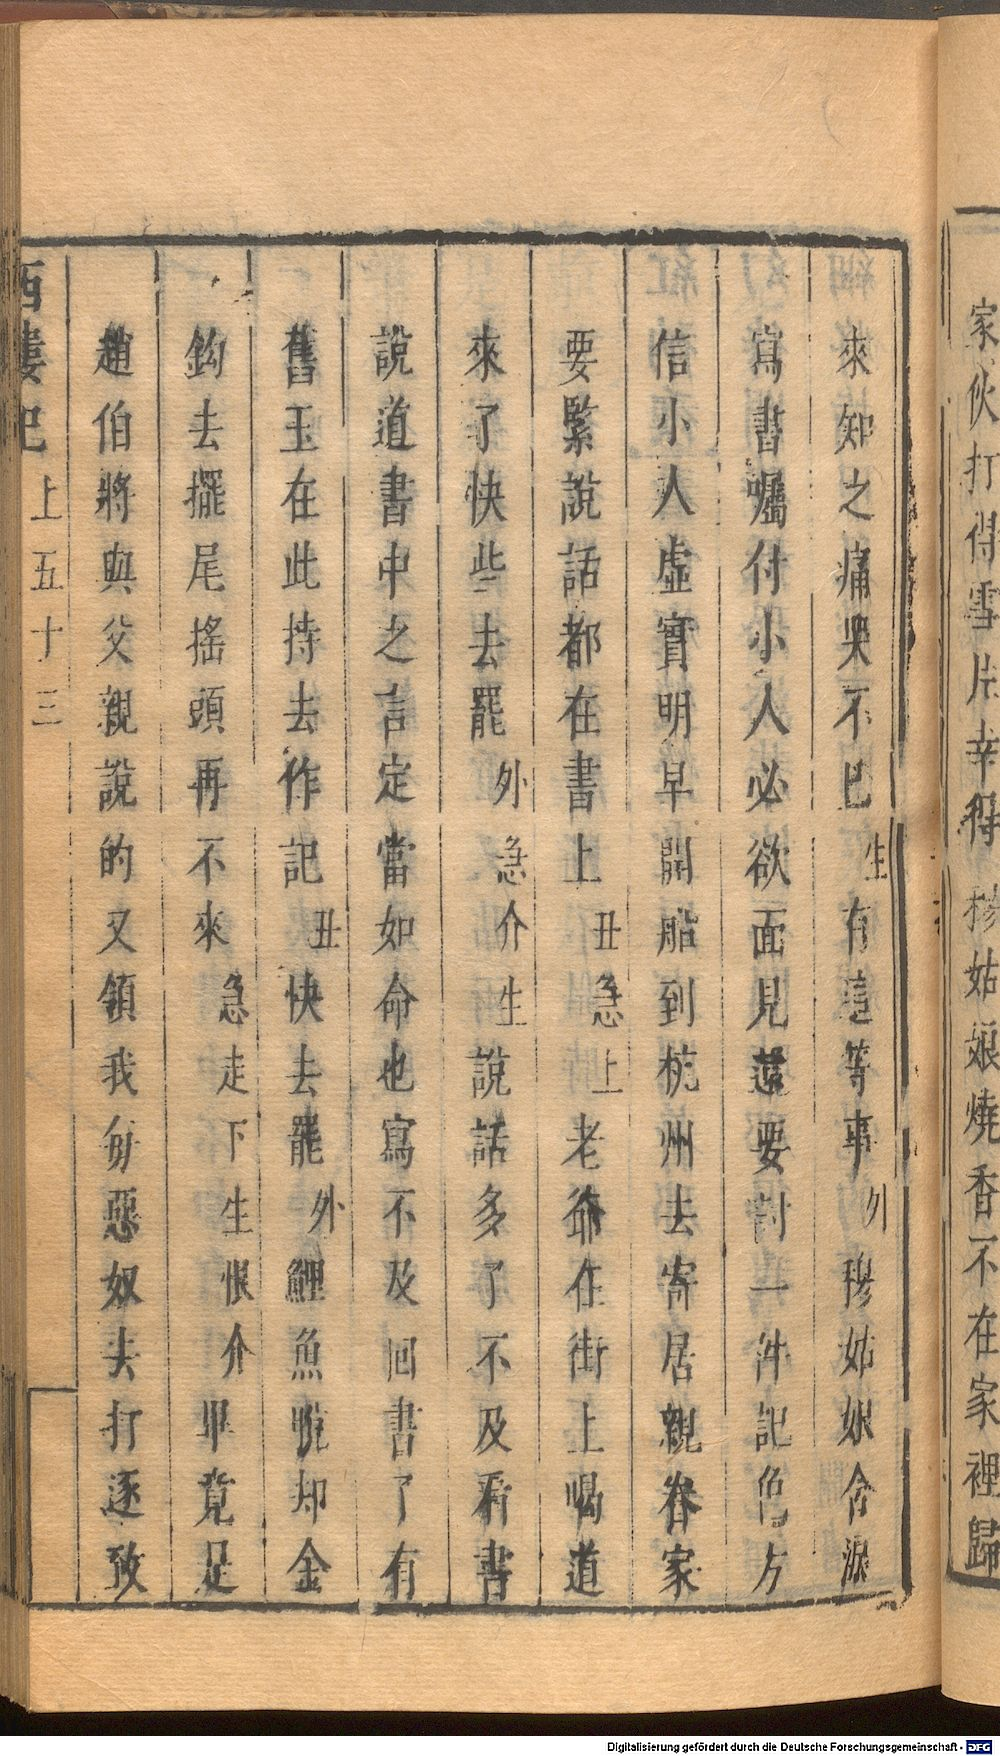 家伙打得雪片幸得楊姑娘燒香不在家裡歸
來知之痛哭不已生有這等事外穆姑娘含淚
寫書囑付小人必欲面見還要討一件記色方
信小人虛實明早開船到杭州去寄居親眷家
要緊說話都在書上丑急上老爺在街上喝道
來了快些去罷外急介生說話多了不及看書
說道書中之言定當如命也寫不及回書了有
舊玉在此持去作記丑快去罷外鯉魚脫却金
鈎去擺尾搖頭再不來急走下生恨介畢竟是
趙伯將與父親說的又領我身惡奴去打逐致
西樓記 上五十三
Digitalisierung gefördert durch die Deutsche Forschungsgemeinschaft - DFG